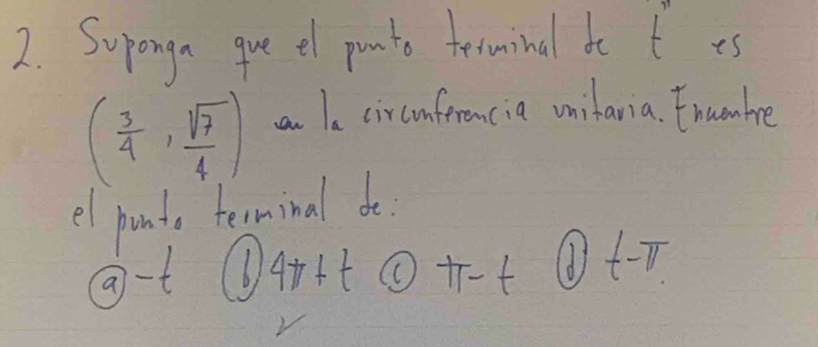 2. Suponga que el punto terminal de "t" es
(3/4, √7/4) en la circunferencia unitaria. Encuentre
el punto terminal de:
ⓐ -t ⓑ 4π+t ⓒ π-t ⓓ t-π.